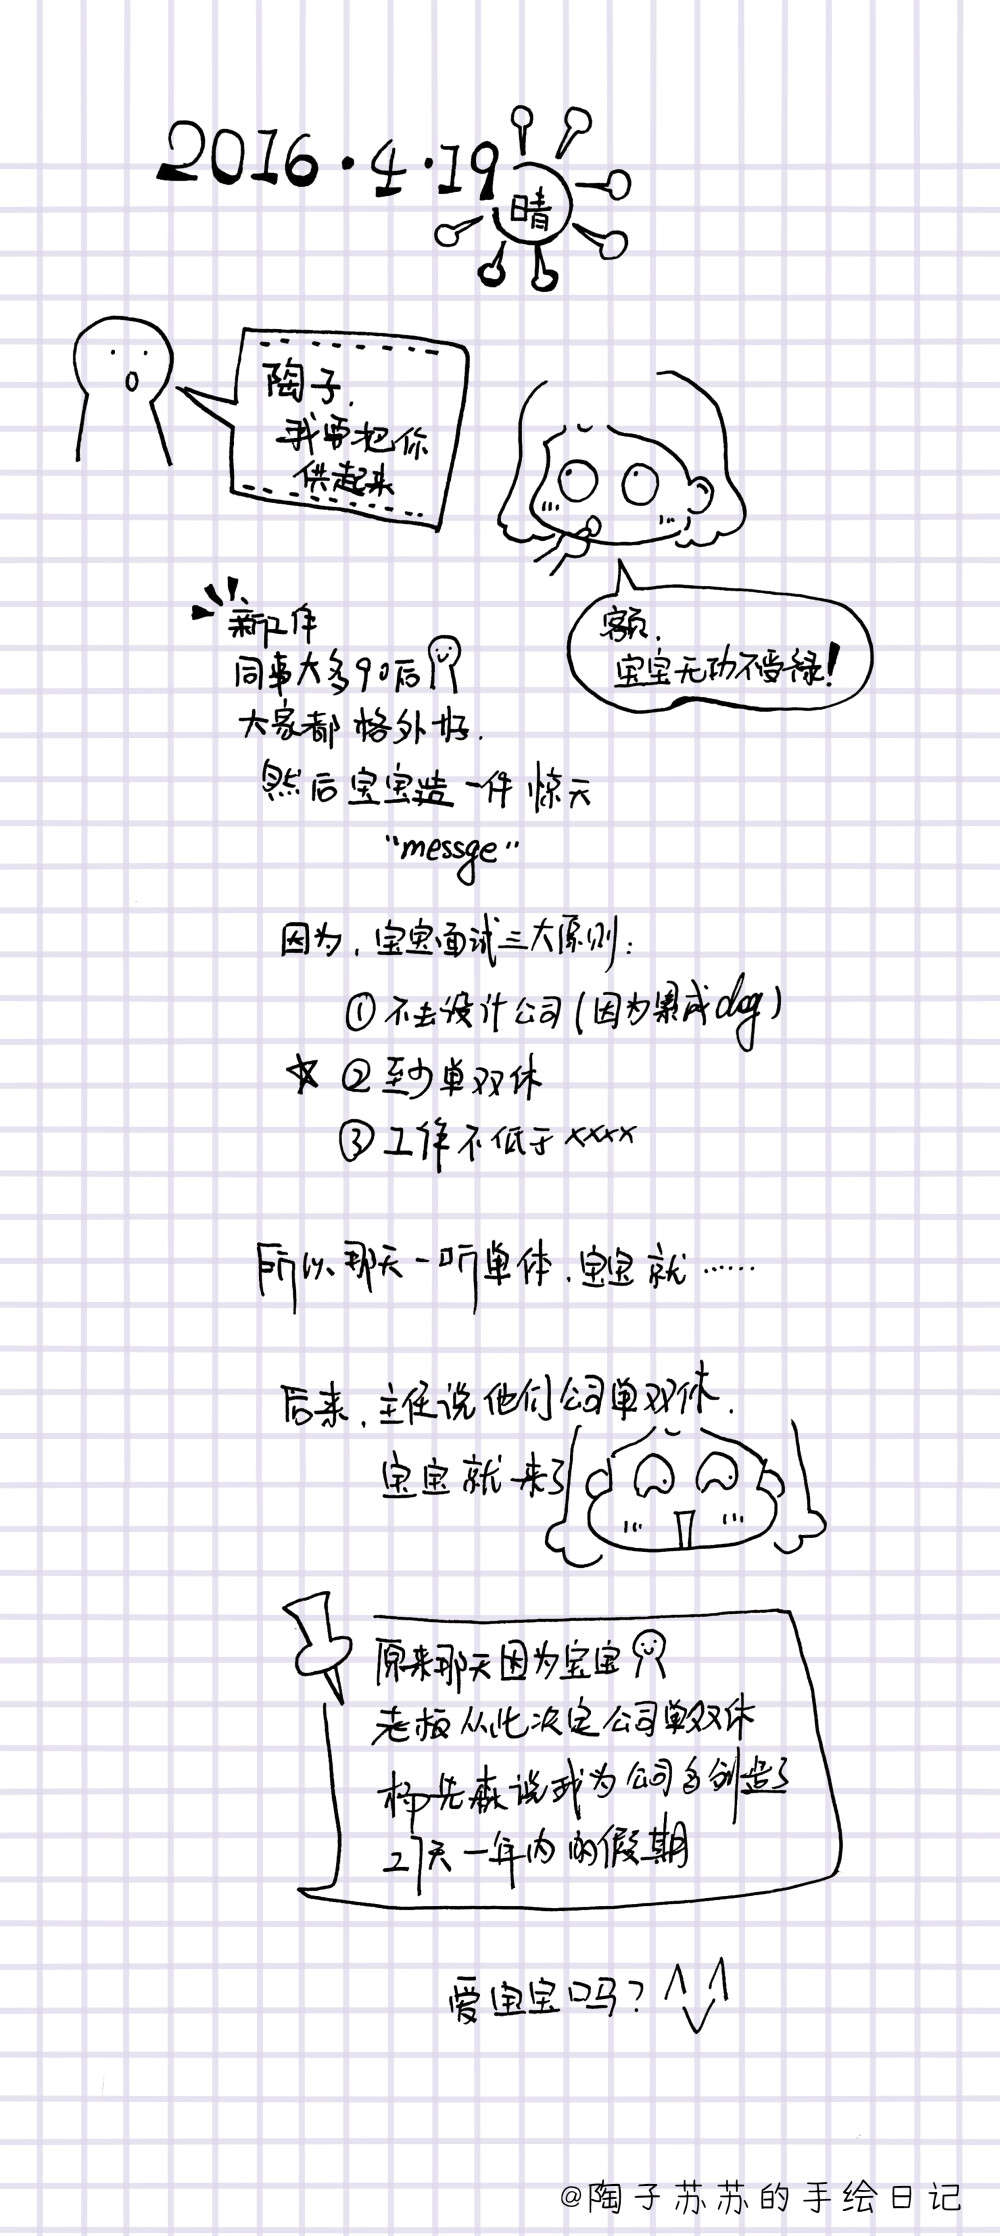 2016·4·19
晴
陶子,
我要把你
供起来
额,
宝宝无功不受禄!
新工作
同事大多90后
大家都格外好.
然后宝宝造一件惊天
"messge"
因为,宝宝面试三大原则:
①不去设计公司(因为累成dog)
②至少单双休
③工作不低于xxxx
所以那天一听单休,宝宝就……
后来,主任说他们公司单双休.
宝宝就来了
原来那天因为宝宝
老板从此决定公司单双休
柳先森说我为公司多创造了
27天一年内的假期
爱宝宝吗?
@陶子苏苏的手绘日记